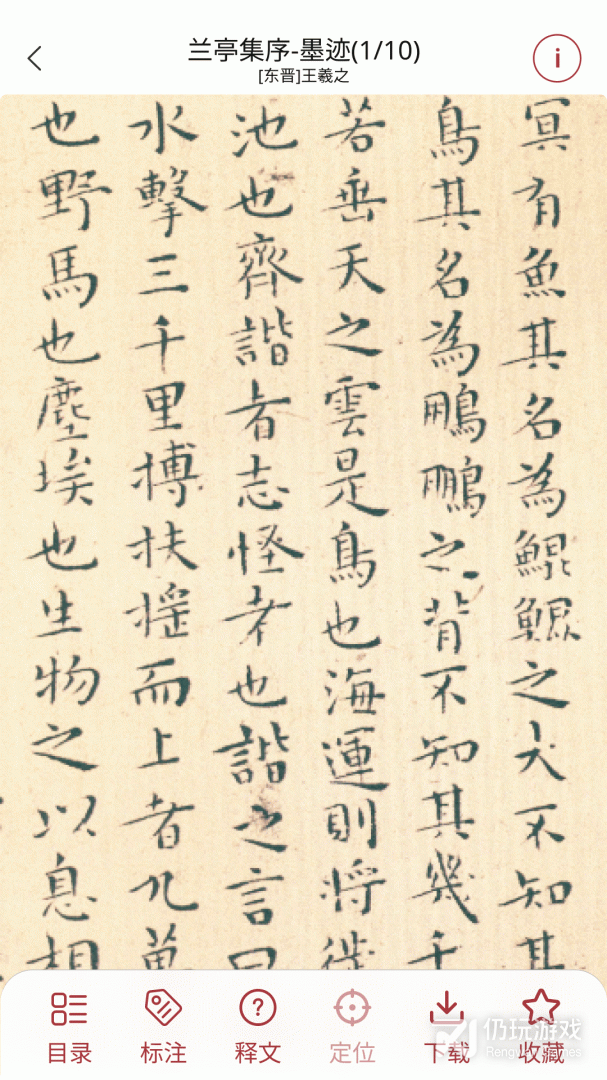 兰亭集序-墨迹(1/10)
[东晋]王羲之
i
冥有魚其名為鯤鯤之大不知其
鳥其名為鵬鵬之背不知其幾千
若垂天之雲是鳥也海運則將徙
池也齊諧者志怪者也諧之言曰
水擊三千里搏扶摇而上者九萬
也野馬也塵埃也生物之以息相
目录
标注
?
释文
定位
下载
收藏
仍玩游戏